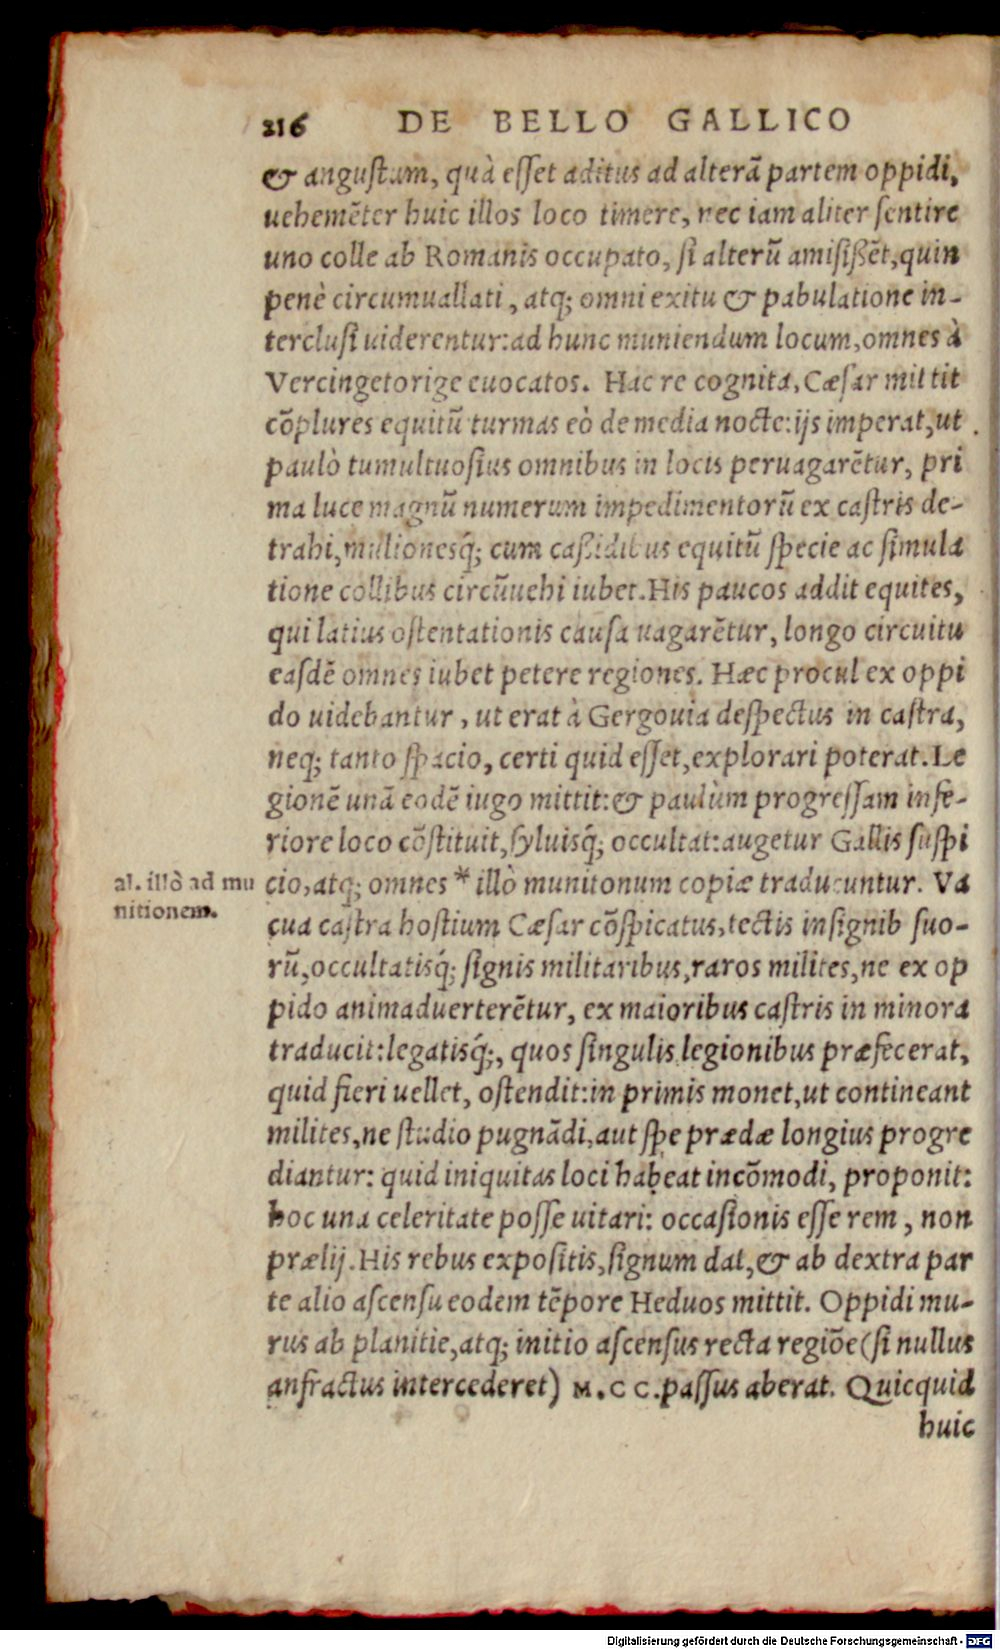 216 DE BELLO GALLICO
& angustam, quà esset aditus ad alterā partem oppidi,
uehemēter huic illos loco timere, nec iam aliter sentire
uno colle ab Romanis occupato, si alterū amisißēt, quin
penè circumuallati, atq; omni exitu & pabulatione in-
terclusi uiderentur: ad hunc muniendum locum, omnes à
Vercingetorige euocatos. Hac re cognita, Cæsar mittit
cōplures equitū turmas eò de media nocte: ijs imperat, ut
paulò tumultuosius omnibus in locis peruagarētur, pri
ma luce magnū numerum impedimentorū ex castris de-
trahi, mulionesq́; cum cassidibus equitū specie ac simula
tione collibus circūuehi iubet. His paucos addit equites,
qui latius ostentationis causa uagarētur, longo circuitu
easdē omnes iubet petere regiones. Hæc procul ex oppi
do uidebantur, ut erat à Gergouia despectus in castra,
neq; tanto spacio, certi quid esset, explorari poterat. Le
gionē unā eodē iugo mittit: & paulùm progressam infe-
riore loco cōstituit, syluisq́; occultat: augetur Gallis suspi
al. illò ad mu cio, atq; omnes * illò munitonum copiæ traducuntur. Va
nitionem. cua castra hostium Cæsar cōspicatus, tectis insignib suo-
rū, occultatisq́; signis militaribus, raros milites, ne ex op
pido animaduerterētur, ex maioribus castris in minora
traducit: legatisq́;, quos singulis legionibus præfecerat,
quid fieri uellet, ostendit: in primis monet, ut contineant
milites, ne studio pugnādi, aut spe prædæ longius progre
diantur: quid iniquitas loci habeat incōmodi, proponit:
hoc una celeritate posse uitari: occasionis esse rem, non
prælij. His rebus expositis, signum dat, & ab dextra par
te alio ascensu eodem tēpore Heduos mittit. Oppidi mu-
rus ab planitie, atq; initio ascensus recta regiōe (si nullus
anfractus intercederet) M.CC. passus aberat. Quicquid
huic
Digitalisierung gefördert durch die Deutsche Forschungsgemeinschaft - DFG